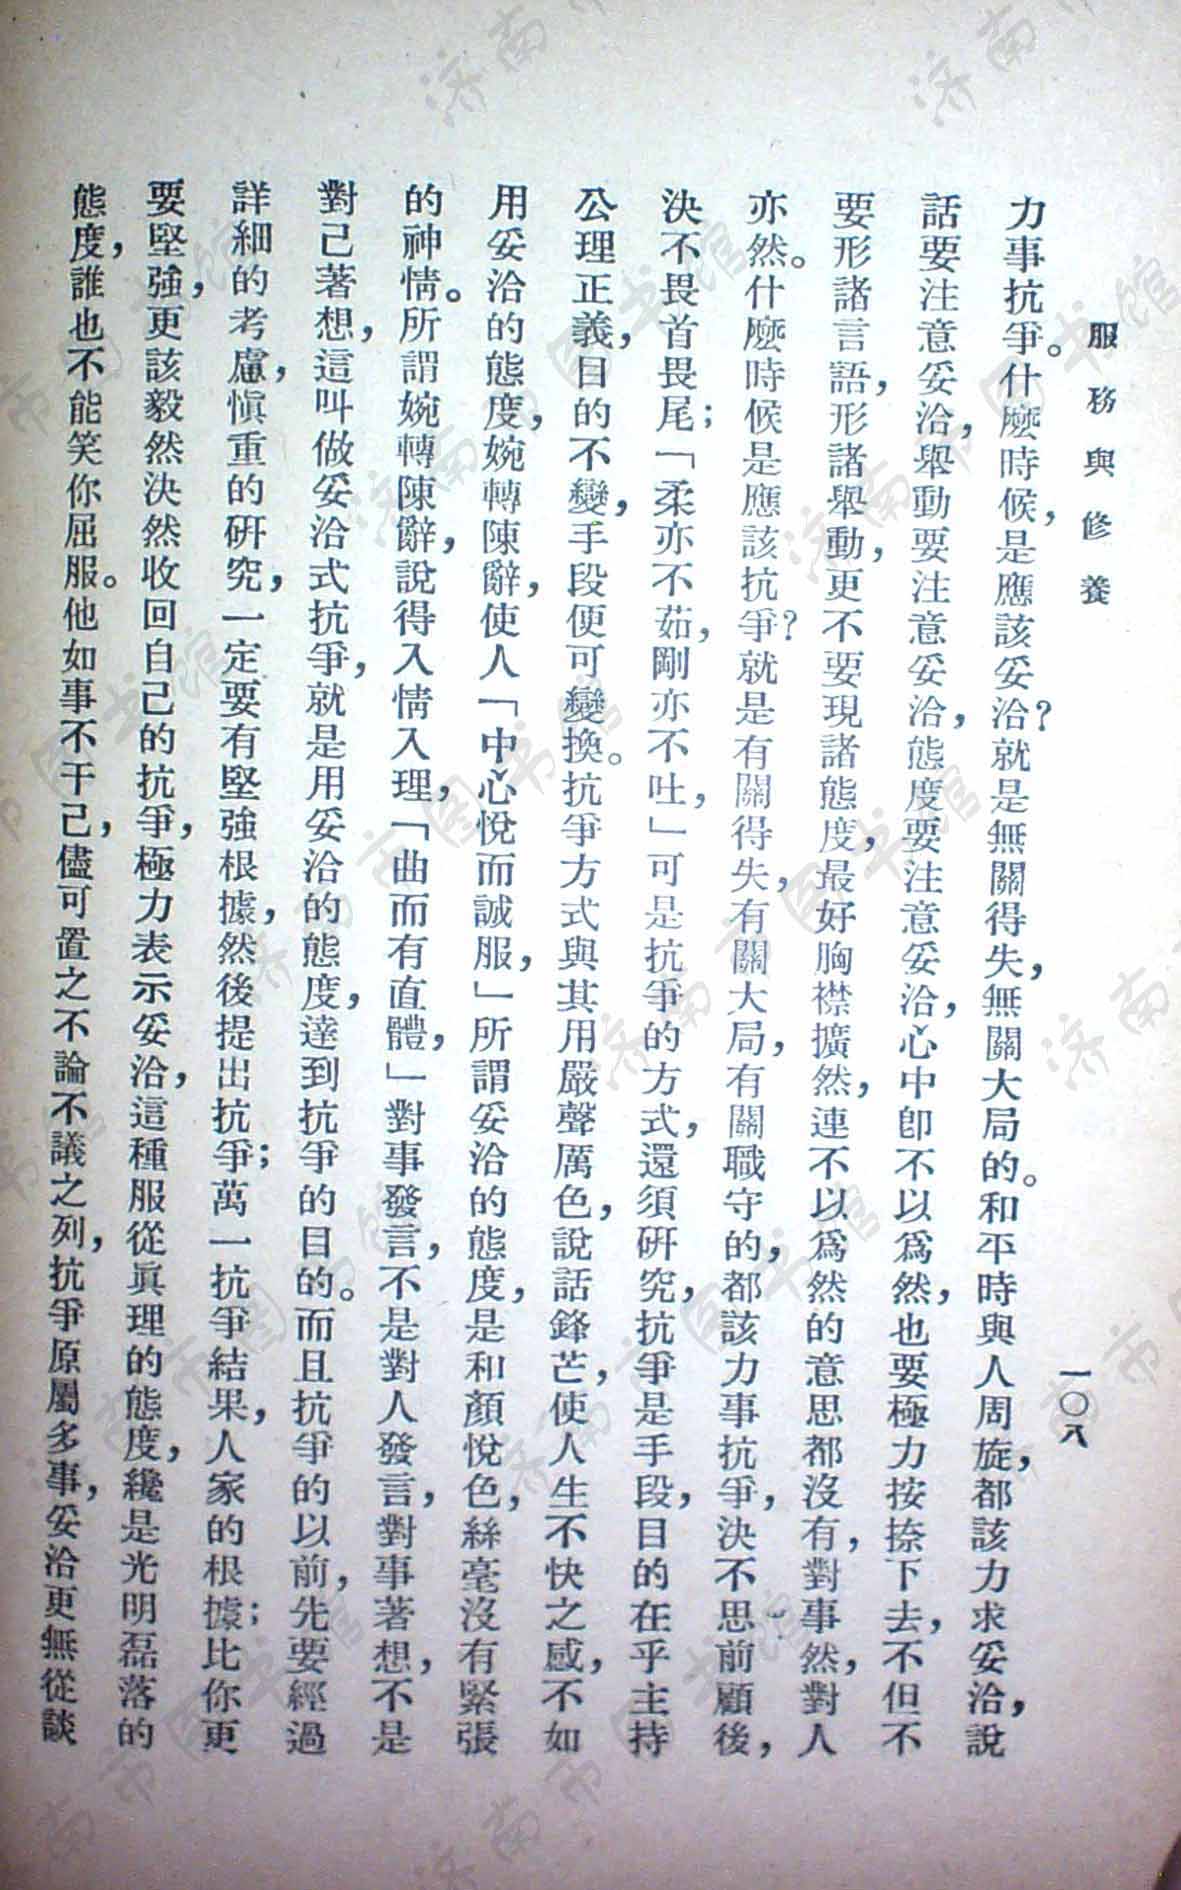 服務與修養
一〇八
力事抗爭。什麼時候，是應該妥洽？就是無關得失，無關大局的。和平時與人周旋，都該力求妥洽，說
話要注意妥洽，舉動要注意妥洽，態度要注意妥洽，心中卽不以爲然，也要極力按捺下去，不但不
要形諸言語，形諸舉動，更不要現諸態度，最好胸襟擴然，連不以爲然的意思都沒有，對事然，對人
亦然。什麼時候是應該抗爭？就是有關得失，有關大局，有關職守的，都該力事抗爭，決不思前顧後，
決不畏首畏尾；「柔亦不茹，剛亦不吐，」可是抗爭的方式，還須研究，抗爭是手段，目的在乎主持
公理正義，目的不變，手段便可變換。抗爭方式與其用嚴聲厲色，說話鋒芒，使人生不快之感，不如
用妥洽的態度，婉轉陳辭，使人「中心悅而誠服，」所謂妥洽的態度，是和顏悅色，絲毫沒有緊張
的神情。所謂婉轉陳辭，說得入情入理，「曲而有直體，」對事發言，不是對人發言，對事著想，不是
對己著想，這叫做妥洽式抗爭，就是用妥洽的態度，達到抗爭的目的。而且抗爭的以前，先要經過
詳細的考慮，愼重的研究，一定要有堅強根據，然後提出抗爭；萬一抗爭結果，人家的根據；比你更
要堅強，更該毅然決然收回自己的抗爭，極力表示妥洽，這種服從眞理的態度，纔是光明磊落的
態度，誰也不能笑你屈服。他如事不干己，儘可置之不論不議之列，抗爭原屬多事，妥洽更無從談
濟南市图书馆